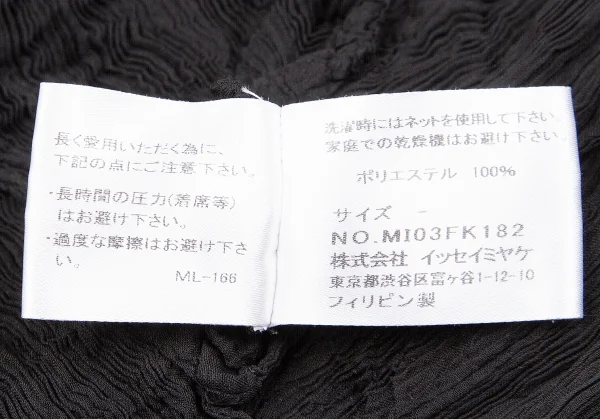 長く愛用いただく為に、
下記の点にご注意下さい。
・長時間の圧力(着席等)
はお避け下さい。
・過度な摩擦はお避け下さ
い。
ML-166
洗濯時にはネットを使用して下さい。
家庭での乾燥機はお避け下さい。
ポリエステル 100%
サイズ -
NO.MI03FK182
株式会社 イッセイミヤケ
東京都渋谷区富ヶ谷1-12-10
フィリピン製